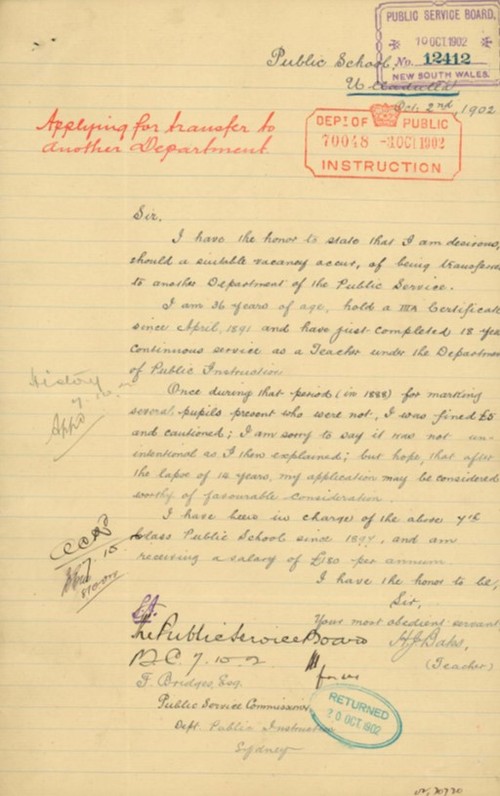 PUBLIC SERVICE BOARD,
10 OCT. 1902
No. 12412
NEW SOUTH WALES.
Public School,
Ulladulla
Oct. 2nd, 1902
DEPT. OF PUBLIC
70048 -3 OCT 1902
INSTRUCTION
Applying for transfer to
another Department.
Sir,
I have the honor to state that I am desirous,
should a suitable vacancy occur, of being transferre
to another Department of the Public Service.
I am 36 years of age, hold a IIIA Certificate
since April, 1891 and have just completed 18 yea
continuous service as a Teacher under the Departmen
of Public Instruction
Once during that period (in 1888) for marking
several pupils present who were not, I was fined £5
and cautioned; I am sorry to say it was not un-
intentional as I then explained; but hope, that after
the lapse of 14 years, my application may be considered
worthy of favourable consideration.
I have been in charge of the above 7th
Class Public School since 1897, and am
receiving a salary of £180 per annum.
I have the honor to be,
Sir,
Your most obedient servant
(Teacher)
History
The Public Service Board
B.C. 7.10.2
F. Bridges, Esq.
Public Service Commissioner
Dept. Public Instruction
Sydney
RETURNED
20 OCT. 1902